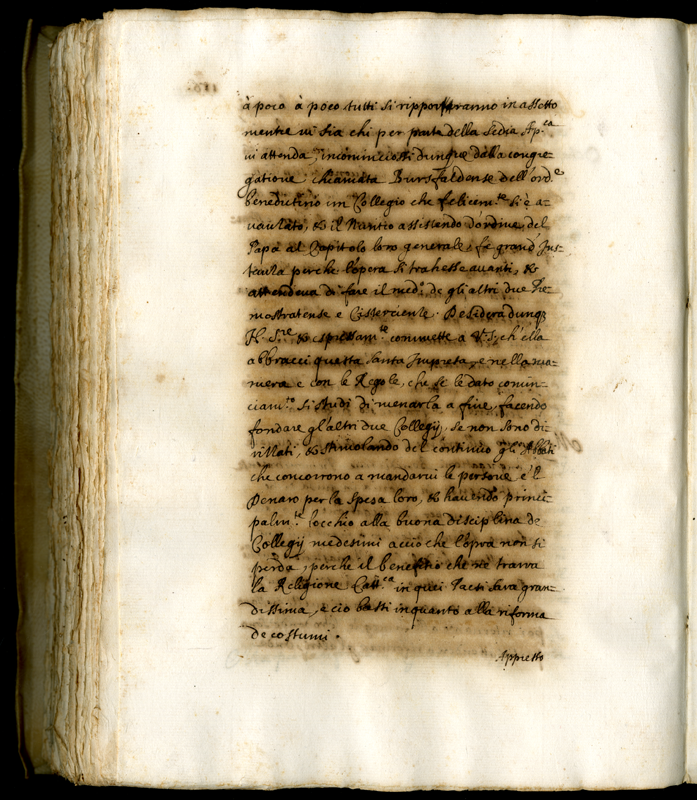 à poco à poco tutti si ripporteranno in assetto
mentre vi sia chi per parte della Sedia Ap.ca
vi attenda, incominciossi dunque dalla congre-
gatione chiamata Bursfaldense dell'ord.e
benedictino un Collegio che felicem.te si è a-
uaulato, & il Nuntio assistendo d'ordine del
Papa al Capitolo loro generale, fe grand Jns-
tentia perche l'opera si trahesse auanti, &
attendeua di fare il med.o de gli altri due Pre-
mostratense e Cisterciente. Desidera dunq;
N. S.re & espressam.te commette a V. S. ch'ella
abbracci questa santa Impresa, e nella ma-
niera e con le Regole, che se le dato comin-
ciam.to si studi di menarla a fine, facendo
fondare gl'altri due Collegij, se non sono di-
rittati, & stimolando del continuo gli Abbati
che concorrono a mandarui le persone e 'l
Denaro per la spesa loro, & hauendo princi-
palm.te l'occhio alla buona disciplina de
Collegij medesimi accio che l'opra non si
perda, perche il beneficio che ne trarra
la Religione Catt.ca in quei Paesi sara gran-
dissima, e cio basti in quanto alla riforma
de costumi.
Appresso